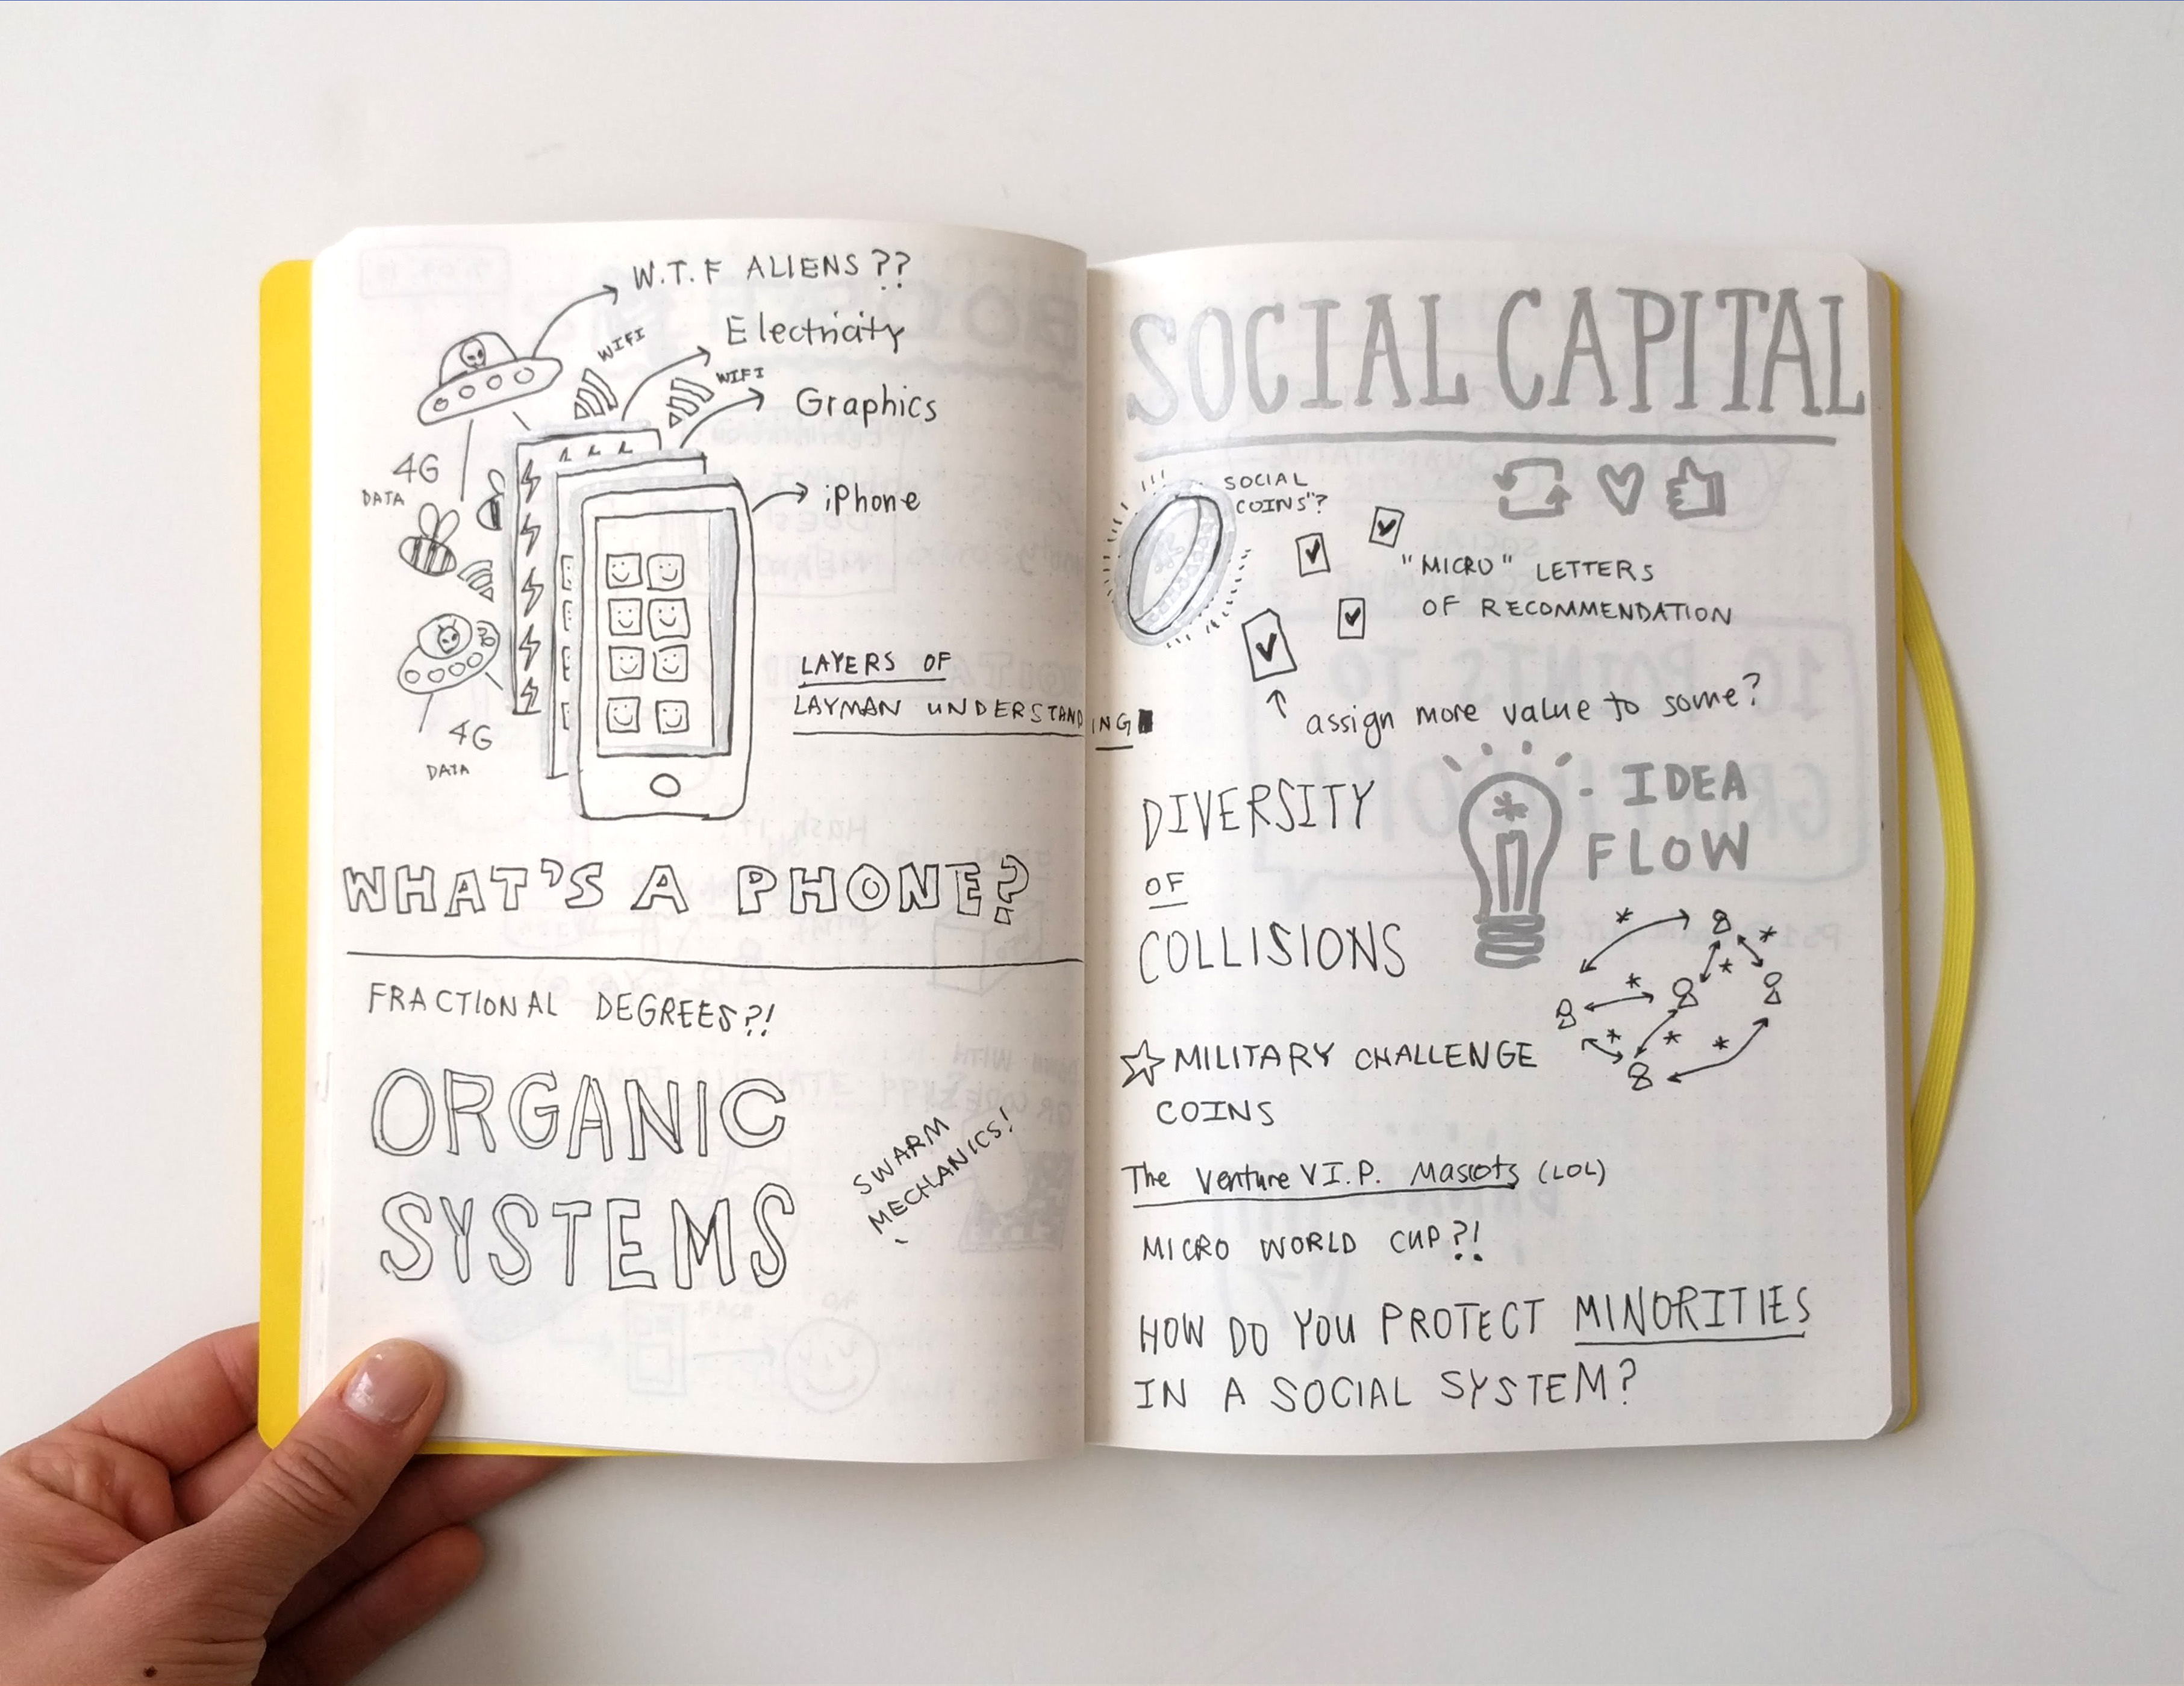 W.T.F ALIENS??
WIFI
Electricity
WIFI
Graphics
4G
DATA
iPhone
LAYERS OF
LAYMAN UNDERSTANDING
4G
DATA
WHAT'S A PHONE?
FRACTIONAL DEGREES?!
ORGANIC
SYSTEMS
SWARM
MECHANICS!
SOCIAL CAPITAL
SOCIAL
COINS"?
"MICRO" LETTERS
OF RECOMMENDATION
assign more value to some?
DIVERSITY
OF
COLLISIONS
- IDEA
FLOW
MILITARY CHALLENGE
COINS
The Venture V.I.P. Mascots (LOL)
MICRO WORLD CUP?!
HOW DO YOU PROTECT MINORITIES
IN A SOCIAL SYSTEM?